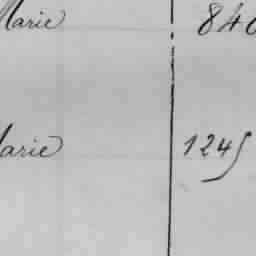 Marie 840
Marie 1245